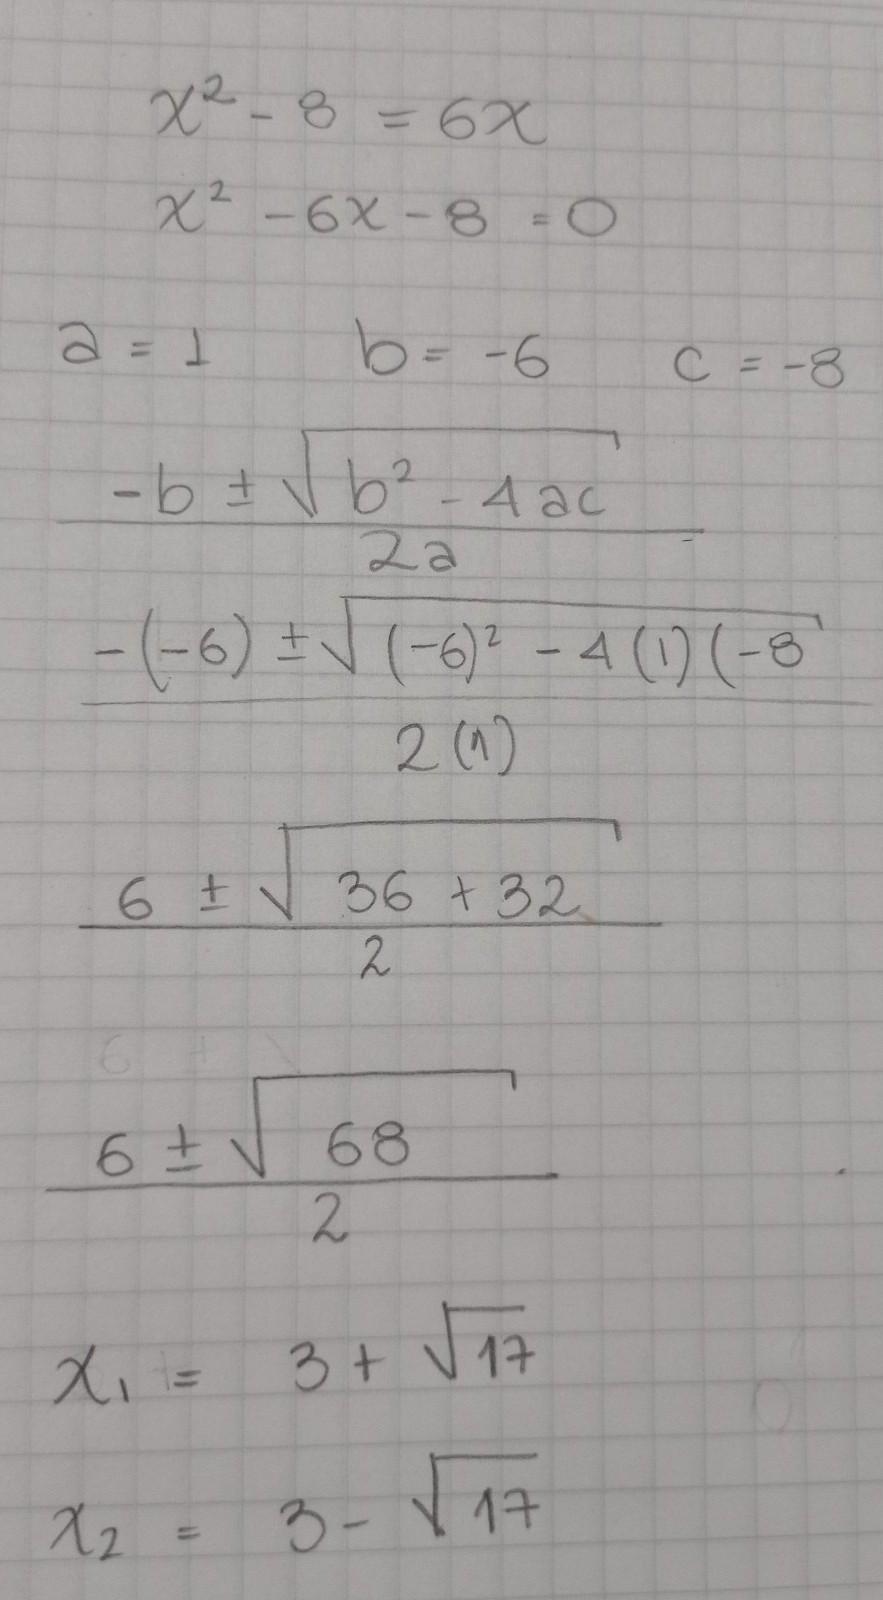 x² - 8 = 6x
x² - 6x - 8 = 0
a = 1 b = -6 c = -8
-b ± √(b² - 4ac)
2a
-(-6) ± √((-6)² - 4(1)(-8
2(1)
6 ± √(36 + 32)
2
6 ± √68
2
x₁ = 3 + √17
x₂ = 3 - √17